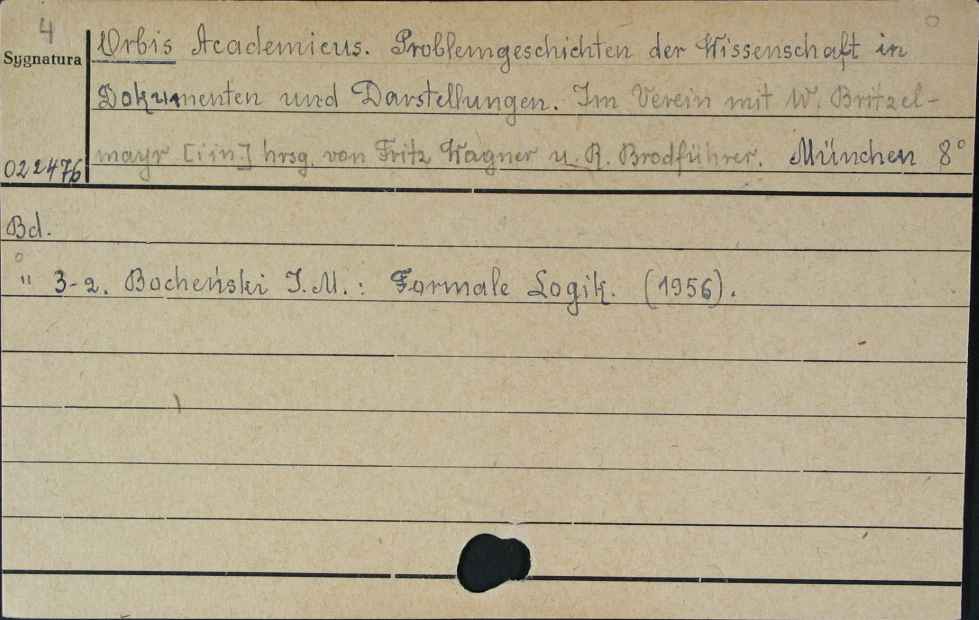 4
Sygnatura
Orbis Academicus. Problemgeschichten der Wissenschaft in
Dokumenten und Darstellungen. Im Verein mit W. Britzel-
mayr [i in.] hrsg. von Fritz Wagner u. R. Brodführer. München 8°
022476
Bd.
" 3-2. Bocheński I.M.: Formale Logik. (1956).